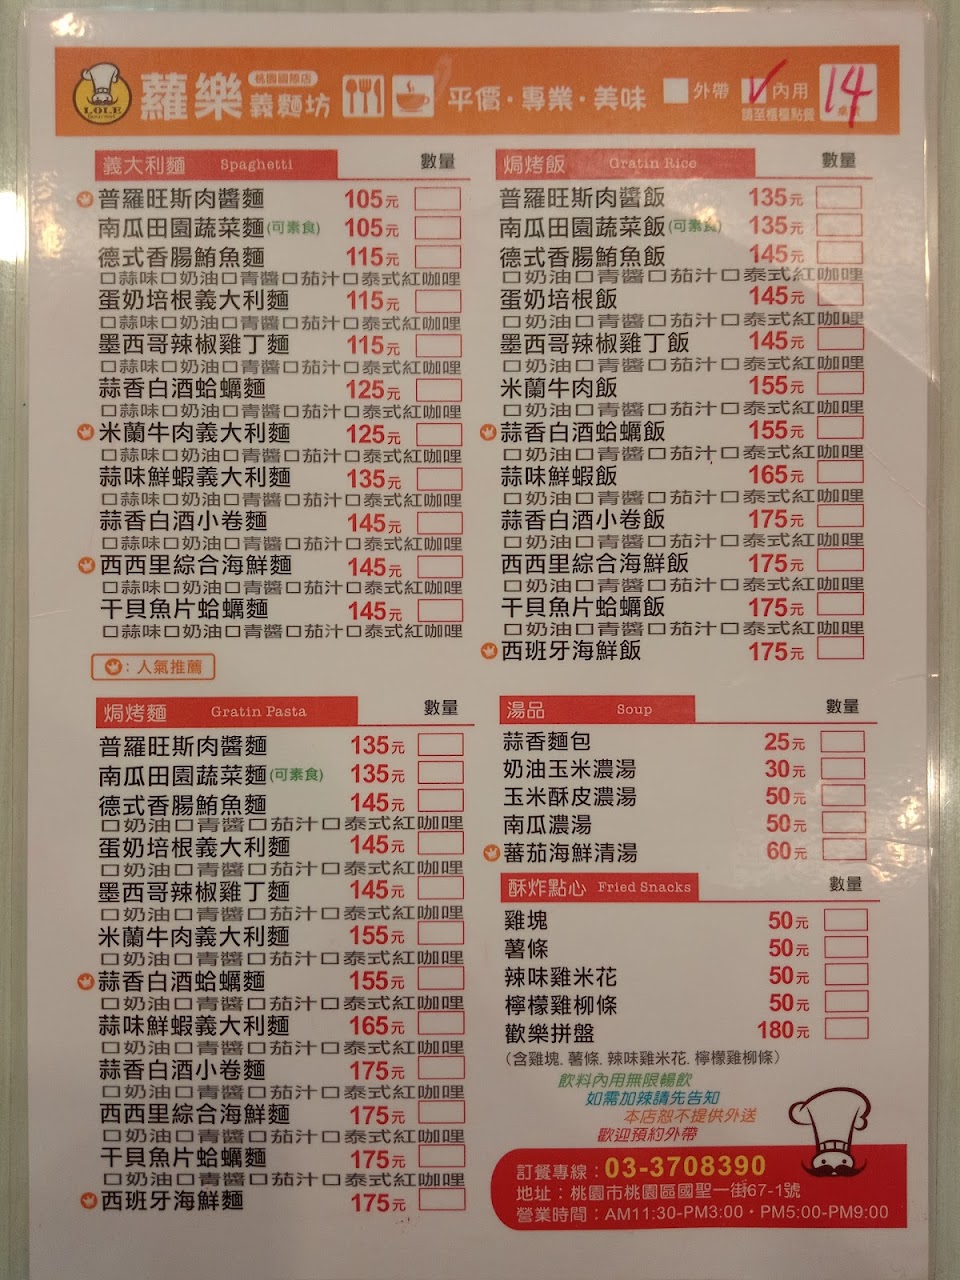 LOLE
蘿樂
桃園國際店
義麵坊
平價·專業·美味
外帶
內用
請至櫃檯點餐
14
義大利麵 Spaghetti 數量
普羅旺斯肉醬麵 105元
南瓜田園蔬菜麵(可素食) 105元
德式香腸鮪魚麵 115元
□蒜味□奶油□青醬□茄汁□泰式紅咖哩
蛋奶培根義大利麵 115元
□蒜味□奶油□青醬□茄汁□泰式紅咖哩
墨西哥辣椒雞丁麵 115元
□蒜味□奶油□青醬□茄汁□泰式紅咖哩
蒜香白酒蛤蠣麵 125元
□蒜味□奶油□青醬□茄汁□泰式紅咖哩
米蘭牛肉義大利麵 125元
□蒜味□奶油□青醬□茄汁□泰式紅咖哩
蒜味鮮蝦義大利麵 135元
□蒜味□奶油□青醬□茄汁□泰式紅咖哩
蒜香白酒小卷麵 145元
□蒜味□奶油□青醬□茄汁□泰式紅咖哩
西西里綜合海鮮麵 145元
□蒜味□奶油□青醬□茄汁□泰式紅咖哩
干貝魚片蛤蠣麵 145元
□蒜味□奶油□青醬□茄汁□泰式紅咖哩
：人氣推薦
焗烤飯 Gratin Rice 數量
普羅旺斯肉醬飯 135元
南瓜田園蔬菜飯(可素食) 135元
德式香腸鮪魚飯 145元
□奶油□青醬□茄汁□泰式紅咖哩
蛋奶培根飯 145元
□奶油□青醬□茄汁□泰式紅咖哩
墨西哥辣椒雞丁飯 145元
□奶油□青醬□茄汁□泰式紅咖哩
米蘭牛肉飯 155元
□奶油□青醬□茄汁□泰式紅咖哩
蒜香白酒蛤蠣飯 155元
□奶油□青醬□茄汁□泰式紅咖哩
蒜味鮮蝦飯 165元
□奶油□青醬□茄汁□泰式紅咖哩
蒜香白酒小卷飯 175元
□奶油□青醬□茄汁□泰式紅咖哩
西西里綜合海鮮飯 175元
□奶油□青醬□茄汁□泰式紅咖哩
干貝魚片蛤蠣飯 175元
□奶油□青醬□茄汁□泰式紅咖哩
西班牙海鮮飯 175元
焗烤麵 Gratin Pasta 數量
普羅旺斯肉醬麵 135元
南瓜田園蔬菜麵(可素食) 135元
德式香腸鮪魚麵 145元
□奶油□青醬□茄汁□泰式紅咖哩
蛋奶培根義大利麵 145元
□奶油□青醬□茄汁□泰式紅咖哩
墨西哥辣椒雞丁麵 145元
□奶油□青醬□茄汁□泰式紅咖哩
米蘭牛肉義大利麵 155元
□奶油□青醬□茄汁□泰式紅咖哩
蒜香白酒蛤蠣麵 155元
□奶油□青醬□茄汁□泰式紅咖哩
蒜味鮮蝦義大利麵 165元
□奶油□青醬□茄汁□泰式紅咖哩
蒜香白酒小卷麵 175元
□奶油□青醬□茄汁□泰式紅咖哩
西西里綜合海鮮麵 175元
□奶油□青醬□茄汁□泰式紅咖哩
干貝魚片蛤蠣麵 175元
□奶油□青醬□茄汁□泰式紅咖哩
西班牙海鮮麵 175元
湯品 Soup 數量
蒜香麵包 25元
奶油玉米濃湯 30元
玉米酥皮濃湯 50元
南瓜濃湯 50元
蕃茄海鮮清湯 60元
酥炸點心 Fried Snacks 數量
雞塊 50元
薯條 50元
辣味雞米花 50元
檸檬雞柳條 50元
歡樂拼盤 180元
(含雞塊. 薯條. 辣味雞米花. 檸檬雞柳條)
飲料內用無限暢飲
如需加辣請先告知
本店恕不提供外送
歡迎預約外帶
訂餐專線：03-3708390
地址：桃園市桃園區國聖一街67-1號
營業時間：AM11:30-PM3:00·PM5:00-PM9:00